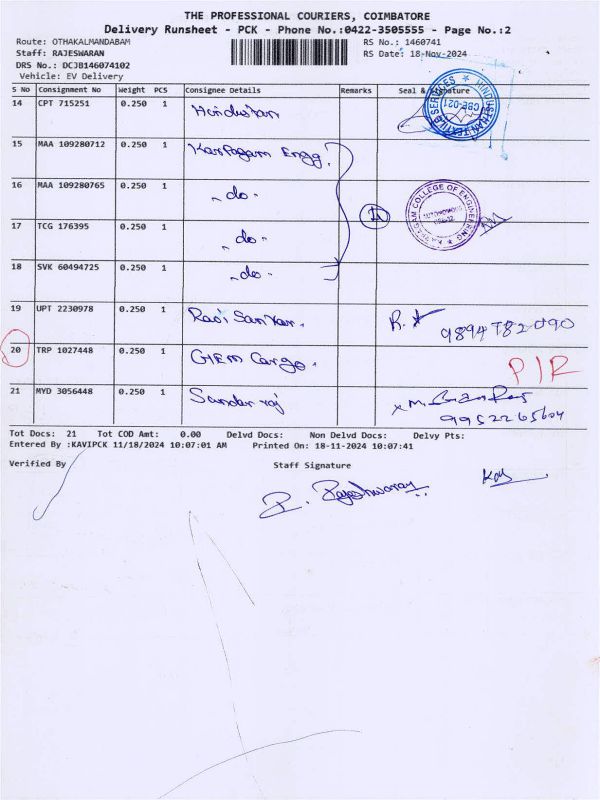 THE PROFESSIONAL COURIERS, COIMBATORE
Delivery Runsheet - PCK - Phone No.:0422-3505555 - Page No.:2
Route: OTHAKALMANDABAM RS No.: 1460741
Staff: RAJESWARAN RS Date: 18-Nov-2024
DRS No.: DCJB146074102
Vehicle: EV Delivery
S No Consignment No Weight PCS Consignee Details Remarks Seal & Signature
14 CPT 715251 0.250 1 Hindustan
CBE-021
15 MAA 109280712 0.250 1 Karpagam Engg.
16 MAA 109280765 0.250 1 - do -
KARPAGAM COLLEGE OF ENGINEERING
17 TCG 176395 0.250 1 - do -
18 SVK 60494725 0.250 1 - do -
19 UPT 2230978 0.250 1 Ravi Sankar. 9894782090
20 TRP 1027448 0.250 1 GEM Cargo. P/R
21 MYD 3056448 0.250 1 Sundar raj
9952265604
Tot Docs: 21 Tot COD Amt: 0.00 Delvd Docs: Non Delvd Docs: Delvy Pts:
Entered By :KAVIPCK 11/18/2024 10:07:01 AM Printed On: 18-11-2024 10:07:41
Verified By Staff Signature
P. Rajeshwaran